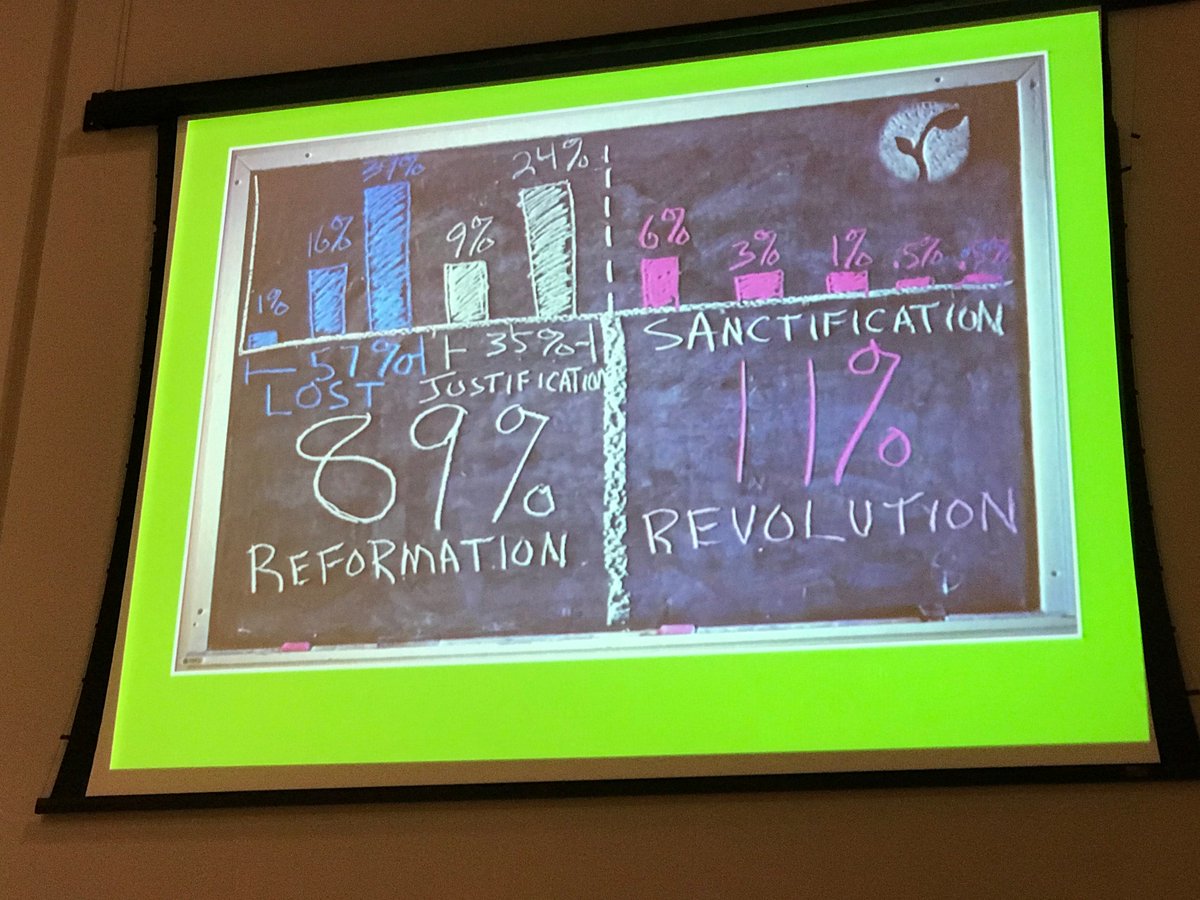 1%
16%
9%
24%
6%
3%
1%
.5%
.5%
57%
35%
LOST
JUSTIFICATION
SANCTIFICATION
89%
11%
REFORMATION
REVOLUTION